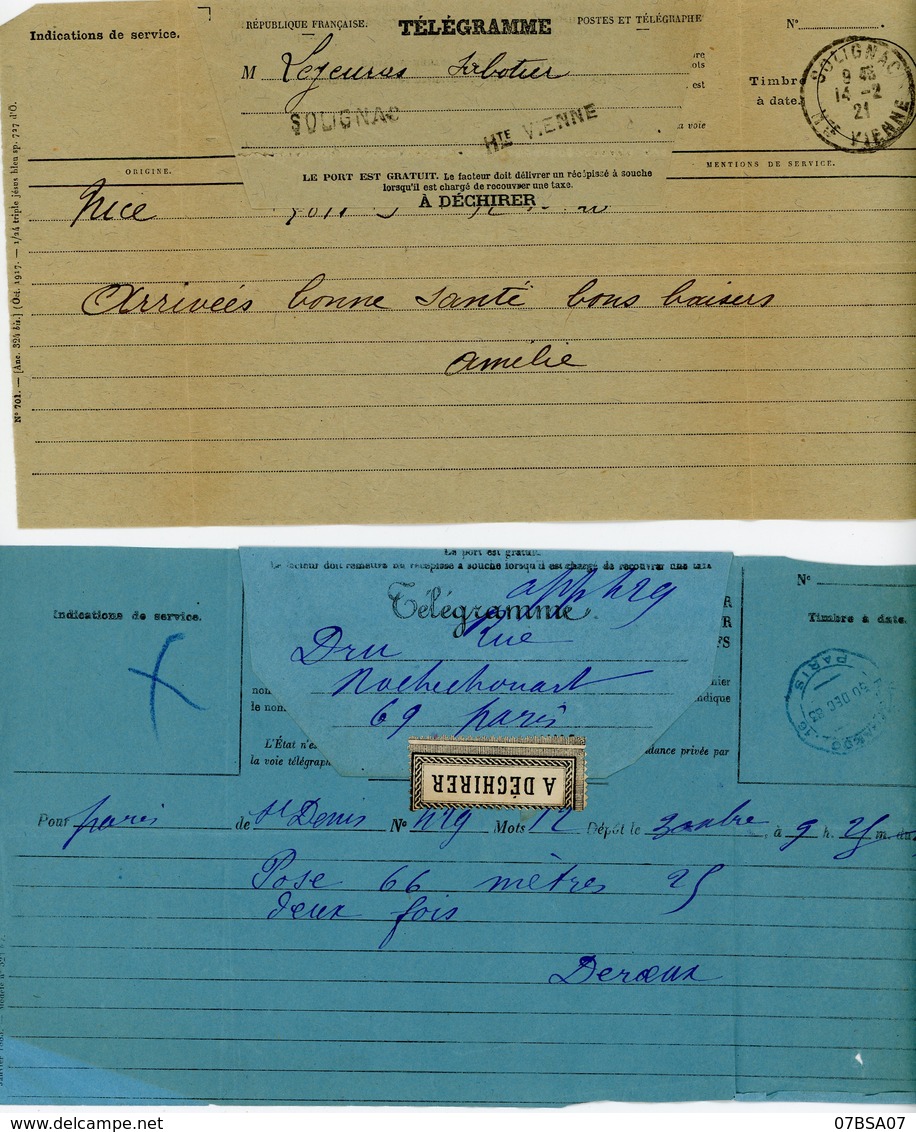 Indications de service.
RÉPUBLIQUE FRANÇAISE.
TÉLÉGRAMME
POSTES ET TÉLÉGRAPHE
N°
M Lejeuras Sabotier
SOLIGNAC
HTE VIENNE
Timbre
à date.
SOLIGNAC
9 45
14 -2
21
HTE VIENNE
LE PORT EST GRATUIT. Le facteur doit délivrer un récépissé à souche
lorsqu'il est chargé de recouvrer une taxe.
À DÉCHIRER
ORIGINE.
MENTIONS DE SERVICE.
Nice
Arrivées bonne santé bons baisers
Amélie
N° 701. — [Anc. 324 bis.] (Oct. 1917. — 1/24 triple jésus bleu sp. 727 d'O.
Le port est gratuit.
Le facteur doit remettre un récépissé à souche lorsqu'il est chargé de recouvrer une taxe
Indications de service.
Télégramme.
N°
Timbre à date.
Dru Rue
Rochechouart
69 paris
PARIS
30 DEC 83
nom
de nom
indique
L'État n'es
la voie télégraph
dance privée par
A DÉCHIRER
Pour paris de St Denis N° 419 Mots 12 Dépôt le 30 xbre, à 9 h. 25 m. du
Pose 66 mètres 25
deux fois
Deroeux
07BSA07